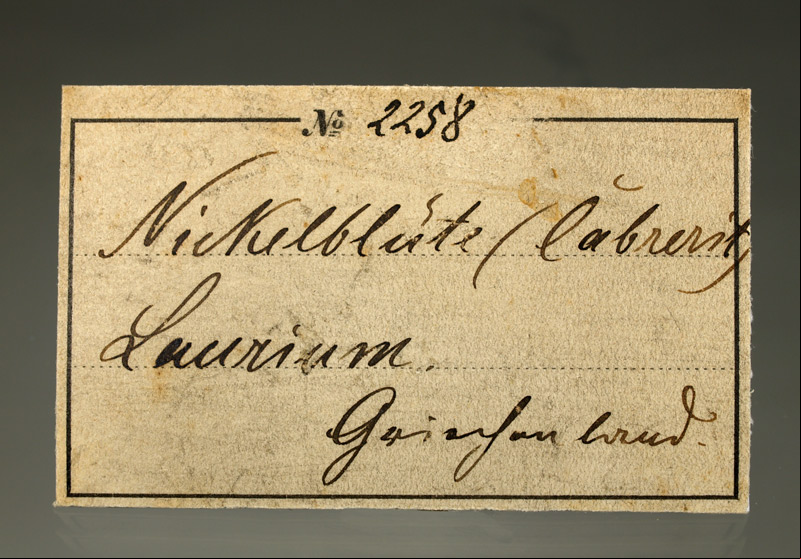 № 2258
Nickelblüte (Cabrerit)
Laurium.
Griechenland.